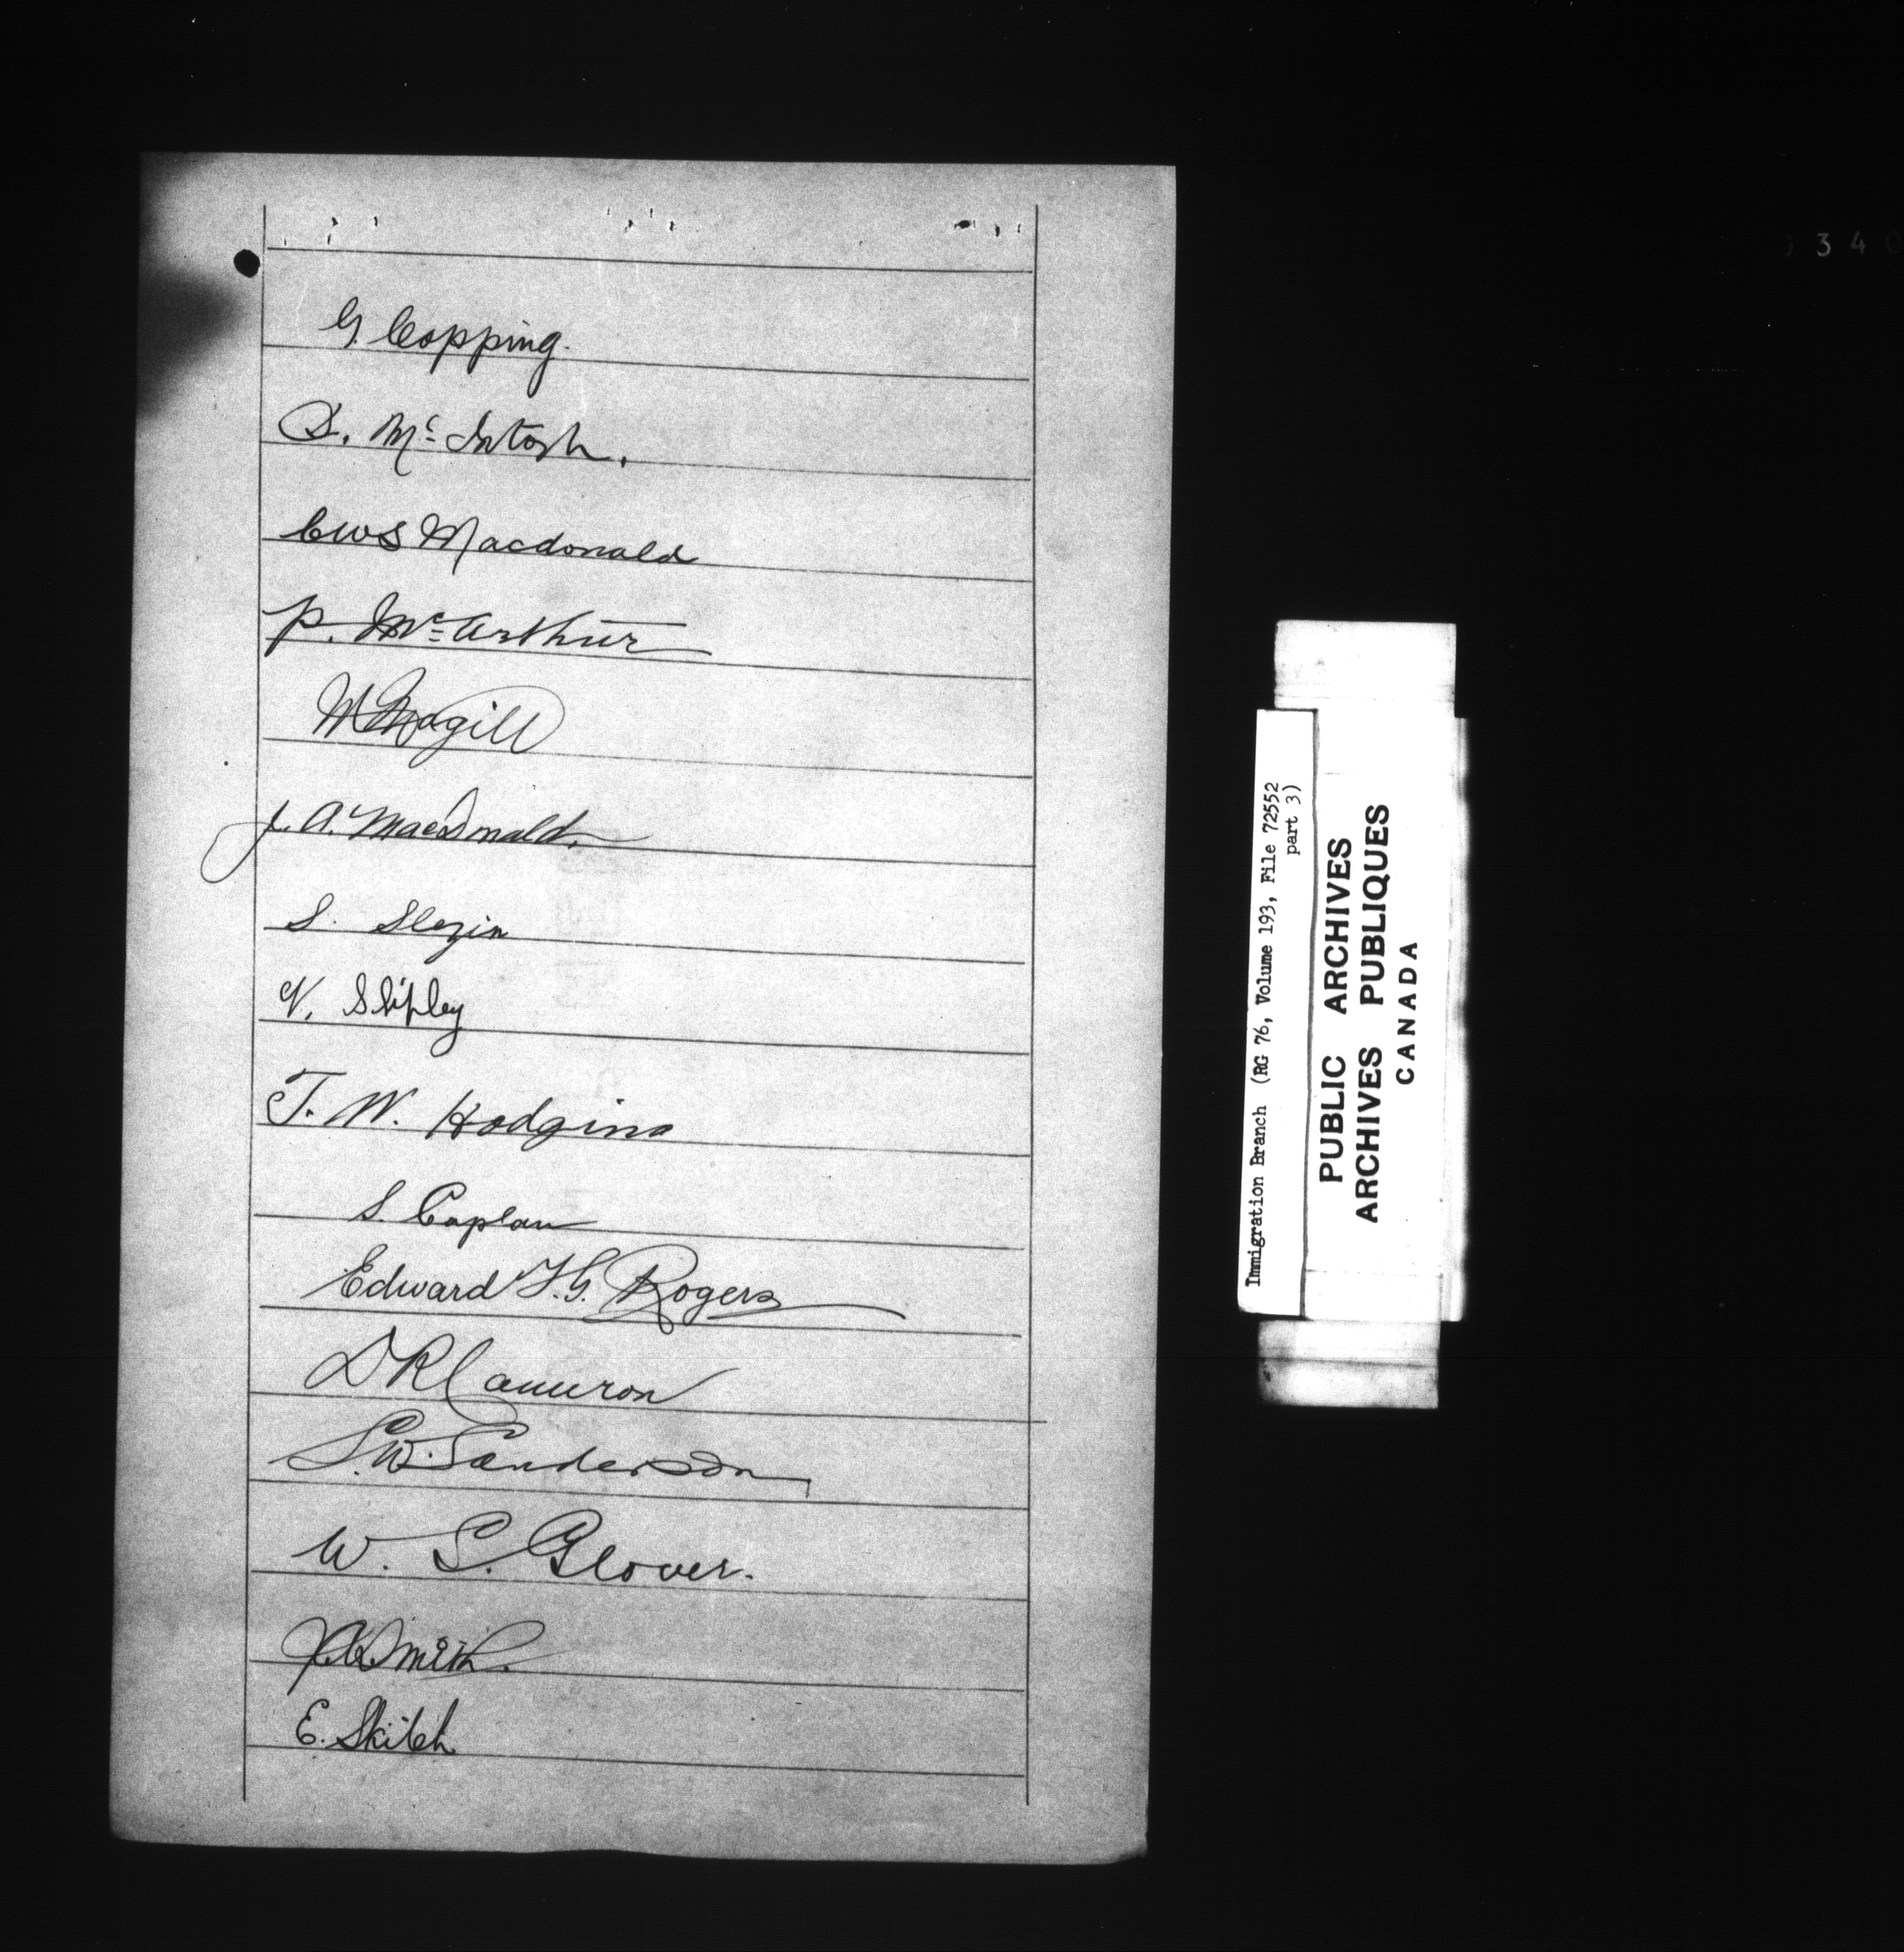 G. Copping.
D. Mc Intosh.
CWS Macdonald
P. Mc Arthur
Magill
J. A. MacDonald.
S. Slezin
V. Shipley
T. W. Hodgins
S. Caplan
Edward F. G. Rogers
D R Cameron
S. W. Sanderson
W. S. Glover.
Smith.
E. Skitch
Immigration Branch (RG 76, Volume 193, File 72552
part 3)
PUBLIC ARCHIVES
ARCHIVES PUBLIQUES
CANADA
34